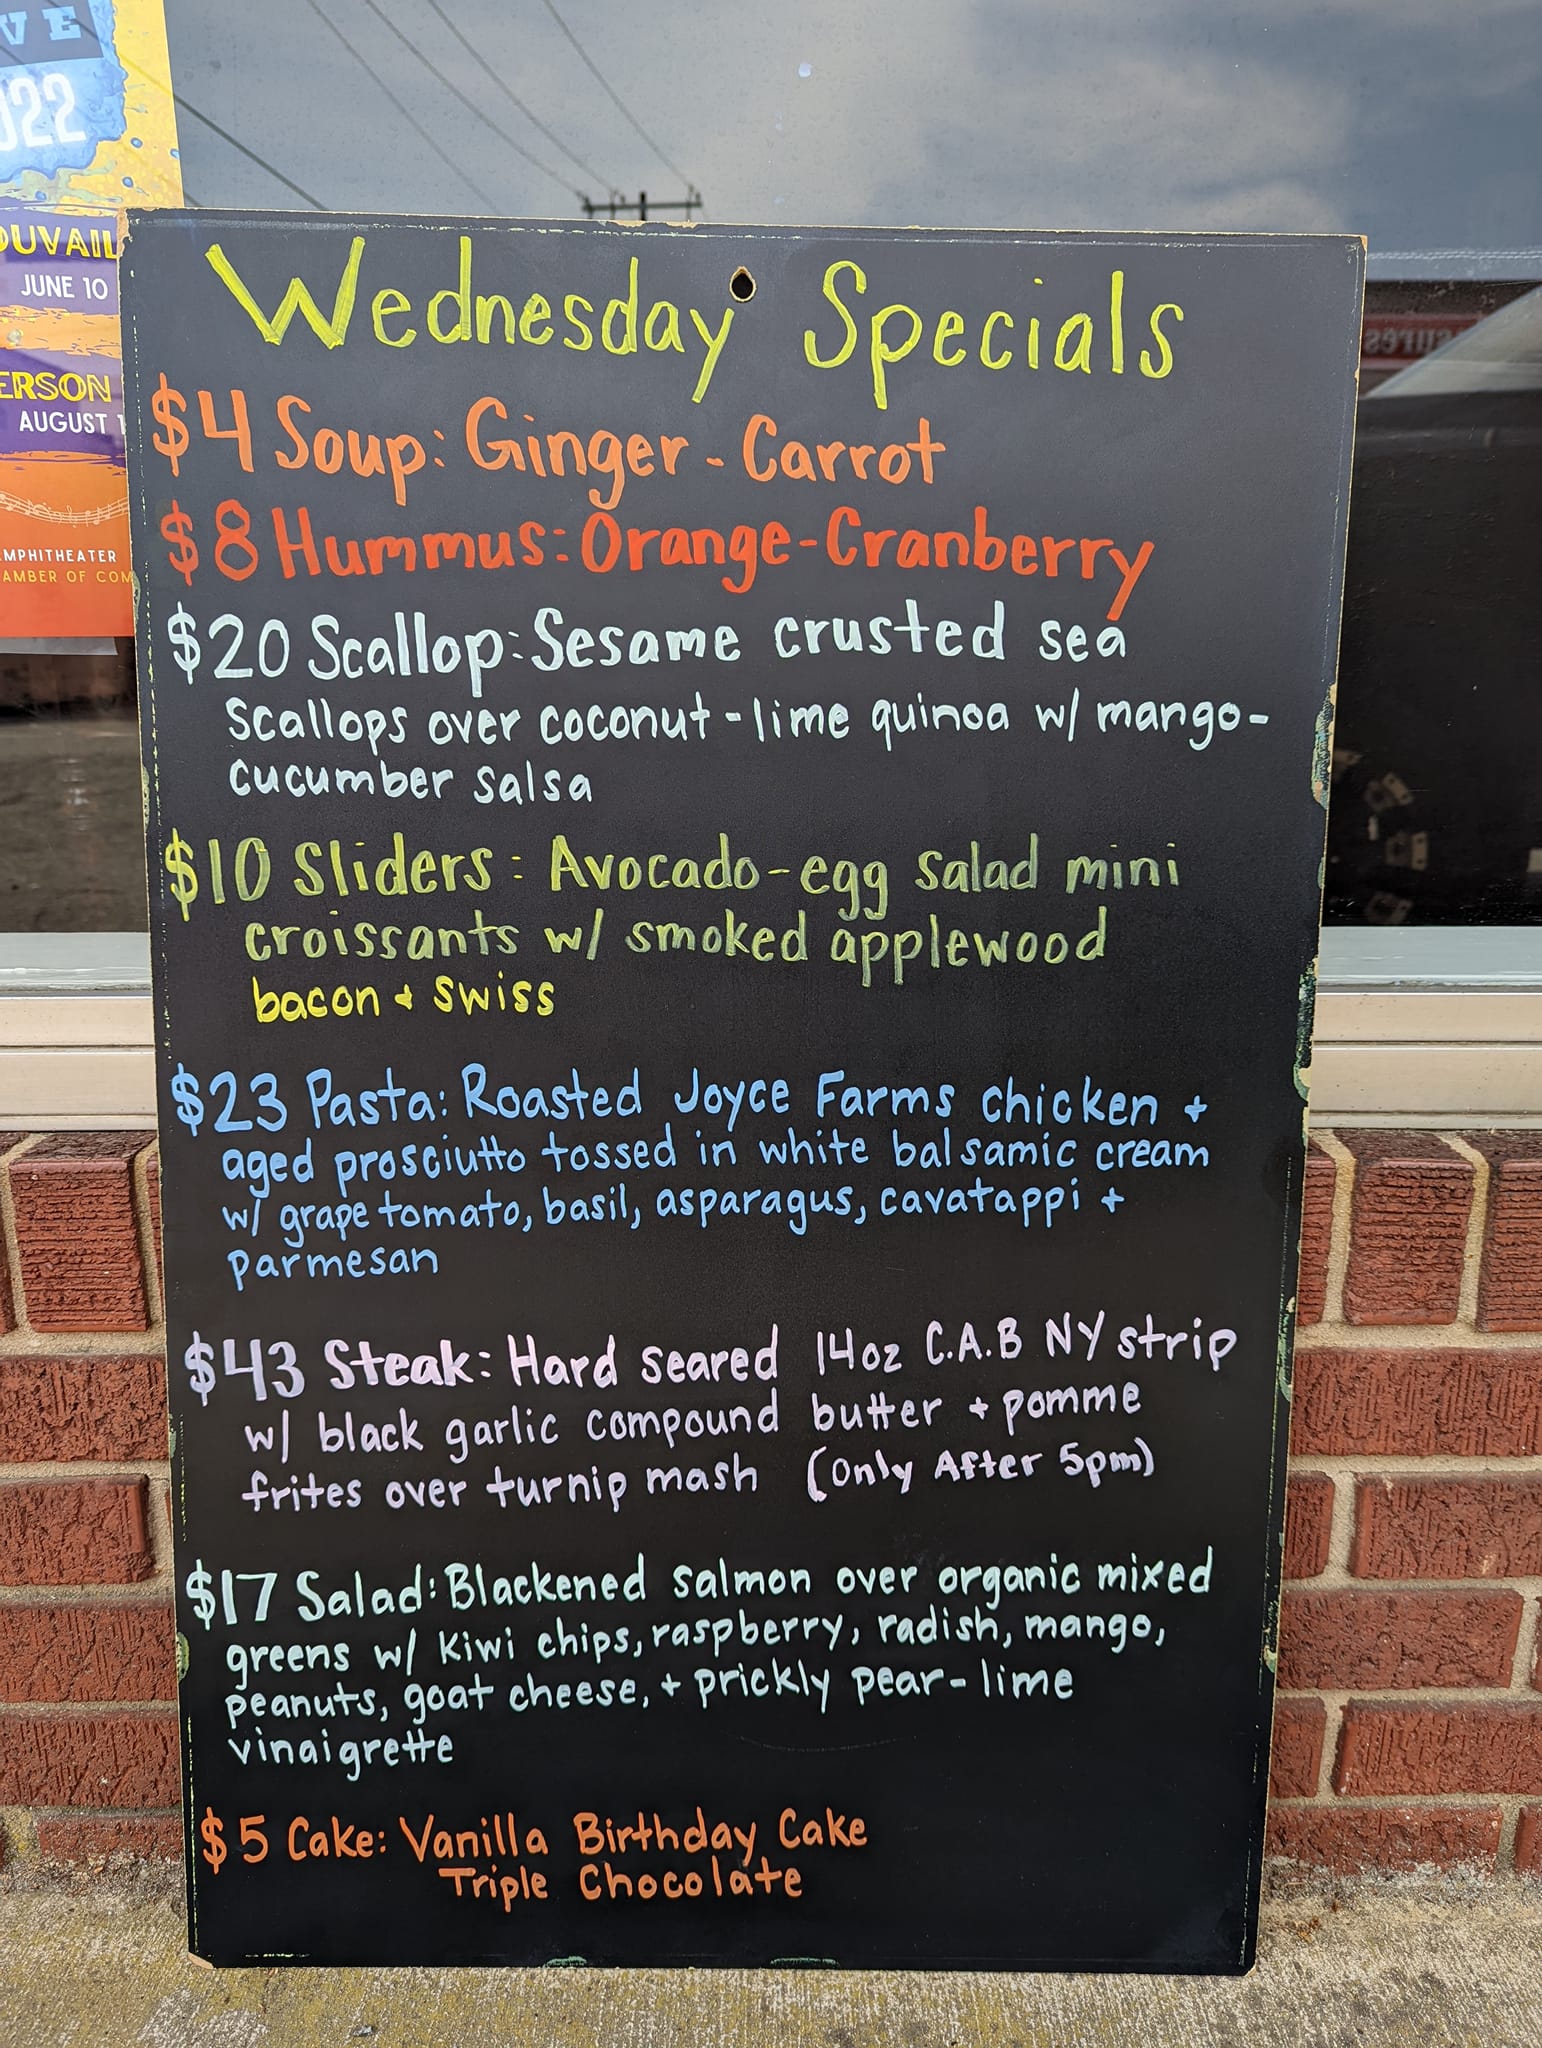 VE
022
OUVAIL
JUNE 10
ERSON
AUGUST 1
AMPHITHEATER
AMBER OF COM
Wednesday Specials
$4 Soup: Ginger-Carrot
$8 Hummus: Orange-Cranberry
$20 Scallop: Sesame crusted sea
scallops over coconut-lime quinoa w/ mango-
cucumber salsa
$10 Sliders: Avocado-egg salad mini
croissants w/ smoked applewood
bacon + swiss
$23 Pasta: Roasted Joyce Farms chicken +
aged prosciutto tossed in white balsamic cream
w/ grape tomato, basil, asparagus, cavatappi +
parmesan
$43 Steak: Hard seared 14oz C.A.B NY strip
w/ black garlic compound butter + pomme
frites over turnip mash (Only After 5pm)
$17 Salad: Blackened salmon over organic mixed
greens w/ kiwi chips, raspberry, radish, mango,
peanuts, goat cheese, + prickly pear-lime
vinaigrette
$5 Cake: Vanilla Birthday Cake
Triple Chocolate